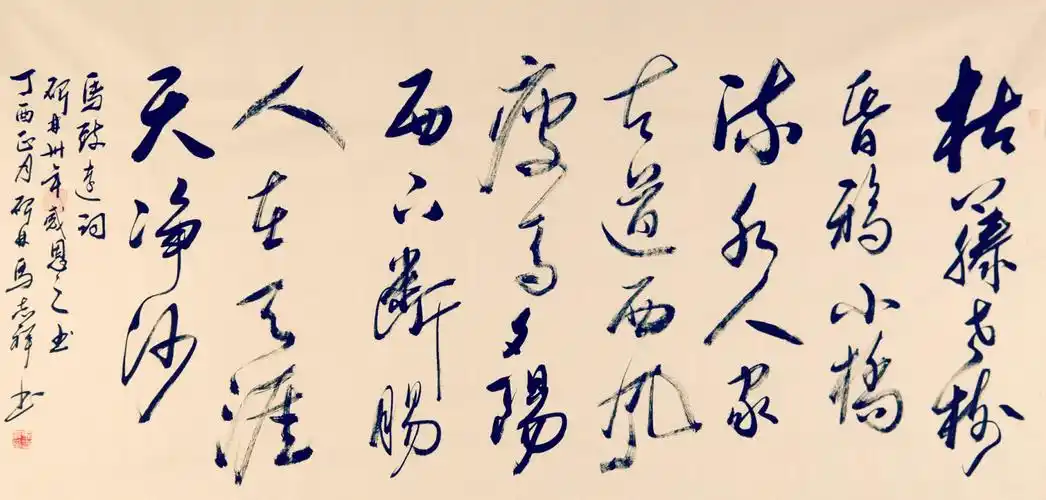 枯藤老樹
昏鴉小橋
流水人家
古道西風
瘦馬夕陽
西下斷腸
人在天涯
天淨沙
馬致遠詞
卅年感恩之书
丁酉正月馬志祥书